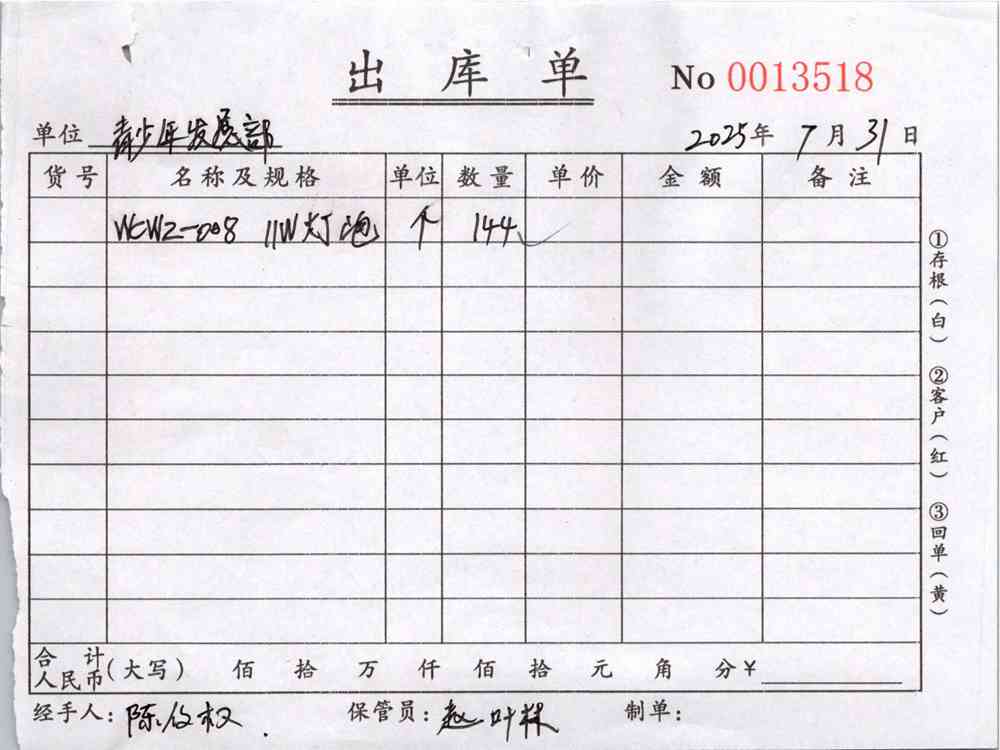 出库单 No 0013518
单位 青少年发展部 2025年 7月 31日
货号 名称及规格 单位 数量 单价 金额 备注
WCWZ-008 11W灯泡 个 144 ✓
①存根(白) ②客户(红) ③回单(黄)
合计人民币(大写) 佰 拾 万 仟 佰 拾 元 角 分 ¥
经手人: 陈 权 保管员: 赵叶林 制单: